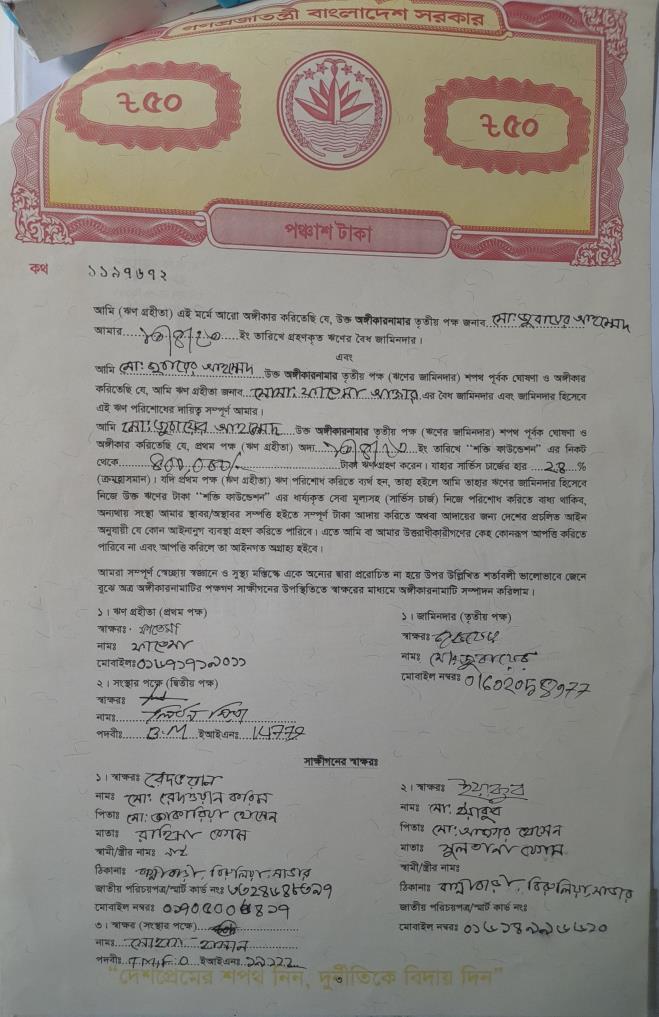 গণপ্রজাতন্ত্রী বাংলাদেশ সরকার
৳৫০ ৳৫০
পঞ্চাশ টাকা
কথ ১১৯৭৬৭২
আমি (ঋণ গ্রহীতা) এই মর্মে আরো অঙ্গীকার করিতেছি যে, উক্ত অঙ্গীকারনামার তৃতীয় পক্ষ জনাব মো: জুবায়ের আহম্মেদ
আমার ইং তারিখে গ্রহণকৃত ঋণের বৈধ জামিনদার।
এবং
আমি মো: জুবায়ের আহম্মেদ উক্ত অঙ্গীকারনামার তৃতীয় পক্ষ (ঋণের জামিনদার) শপথ পূর্বক ঘোষণা ও অঙ্গীকার
করিতেছি যে, আমি ঋণ গ্রহীতা জনাব মোসা: ফাতেমা আক্তার এর বৈধ জামিনদার এবং জামিনদার হিসেবে
এই ঋণ পরিশোধের দায়িত্ব সম্পূর্ণ আমার।
আমি মো: জুবায়ের আহম্মেদ উক্ত অঙ্গীকারনামার তৃতীয় পক্ষ (ঋণের জামিনদার) শপথ পূর্বক ঘোষণা ও
অঙ্গীকার করিতেছি যে, প্রথম পক্ষ (ঋণ গ্রহীতা) অদ্য ইং তারিখে “শক্তি ফাউন্ডেশন” এর নিকট
থেকে ৪০০,০০০/- টাকা ঋণ গ্রহণ করেন। যাহার সার্ভিস চার্জের হার ২৪ %
(ক্রমহ্রাসমান)। যদি প্রথম পক্ষ (ঋণ গ্রহীতা) ঋণ পরিশোধ করিতে ব্যর্থ হন, তাহা হইলে আমি তাহার ঋণের জামিনদার হিসেবে
নিজে উক্ত ঋণের টাকা “শক্তি ফাউন্ডেশন” এর ধার্য্যকৃত সেবা মূল্যসহ (সার্ভিস চার্জ) নিজে পরিশোধ করিতে বাধ্য থাকিব,
অন্যথায় সংস্থা আমার স্থাবর/অস্থাবর সম্পত্তি হইতে সম্পূর্ণ টাকা আদায় করিতে অথবা আদায়ের জন্য দেশের প্রচলিত আইন
অনুযায়ী যে কোন আইনানুগ ব্যবস্থা গ্রহণ করিতে পারিবে। এতে আমি বা আমার উত্তরাধীকারীগণের কেহ কোনরূপ আপত্তি করিতে
পারিবে না এবং আপত্তি করিলে তা আইনগত অগ্রাহ্য হইবে।
আমরা সম্পূর্ণ স্বেচ্ছায় স্বজ্ঞানে ও সুস্থ্য মস্তিষ্কে একে অন্যের দ্বারা প্ররোচিত না হয়ে উপর উল্লিখিত শর্তাবলী ভালোভাবে জেনে
বুঝে অত্র অঙ্গীকারনামাটির পক্ষগণ সাক্ষীগনের উপস্থিতিতে স্বাক্ষরের মাধ্যমে অঙ্গীকারনামাটি সম্পাদন করিলাম।
১। ঋণ গ্রহীতা (প্রথম পক্ষ)
স্বাক্ষরঃ ফাতেমা
নামঃ ফাতেমা
মোবাইলঃ
২। সংস্থার পক্ষে (দ্বিতীয় পক্ষ)
স্বাক্ষরঃ
নামঃ
পদবীঃ B.M ইআইএনঃ 14772
১। জামিনদার (তৃতীয় পক্ষ)
স্বাক্ষরঃ
নামঃ মোঃ জুবায়ের
মোবাইল নম্বরঃ
সাক্ষীগনের স্বাক্ষরঃ
১। স্বাক্ষরঃ রেদওয়ান
নামঃ মো: রেদওয়ান করিম
পিতাঃ মো: জাকারিয়া হোসেন
মাতাঃ রাহিমা বেগম
স্বামী/স্ত্রীর নামঃ নাই
ঠিকানাঃ বিরুলিয়া, সাভার
জাতীয় পরিচয়পত্র/স্মার্ট কার্ড নংঃ
মোবাইল নম্বরঃ
৩। স্বাক্ষর (সংস্থার পক্ষে)
নামঃ
পদবীঃ ইআইএনঃ
২। স্বাক্ষরঃ ইয়াকুব
নামঃ মো: ইয়াকুব
পিতাঃ মো: হোসেন
মাতাঃ সুলতানা বেগম
স্বামী/স্ত্রীর নামঃ
ঠিকানাঃ বিরুলিয়া, সাভার
জাতীয় পরিচয়পত্র/স্মার্ট কার্ড নংঃ
মোবাইল নম্বরঃ
“দেশপ্রেমের শপথ নিন, দুর্নীতিকে বিদায় দিন”
৩